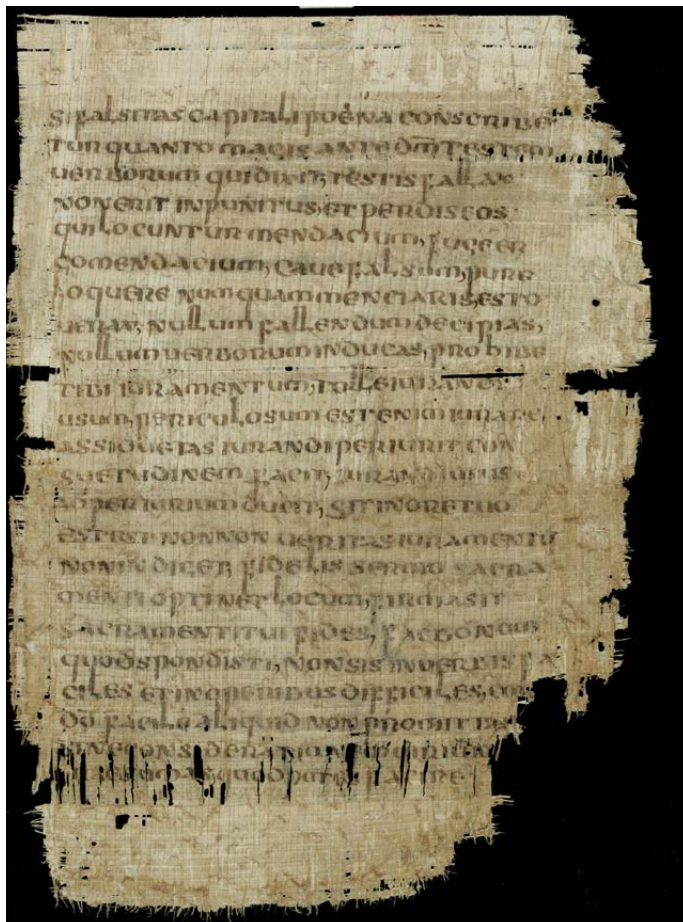 si falsitas capitali poena conscribe
tur quanto magis ante dm testem
uerborum qui dixit, testis fallax
non erit inpunitus, et perdis eos
qui locuntur mendacium, fuge er
go mendacium, caue falsum, pure
loquere nomquam menciaris, esto
uerax, nullum fallendum decipias,
nullum uerborum inducas, prohibe
tibi iuramentum, tolle iurandi
usum, periculosum est enim iurare,
assiduetas iurandi periurit con
suetudinem facit, iurandi usus
ad periurium ducit, sit in ore tuo
est est non non ueritas iuramentu
non indiget, fidelis sermo sacra
menti optinet locum, firma sit
sacramenti tui fides, fac bonum
quod spondisti, non sis in uerbis fa
ciles et in operibus difficiles, con
do facile aliquid non promittas
sine consideratione
quod facire